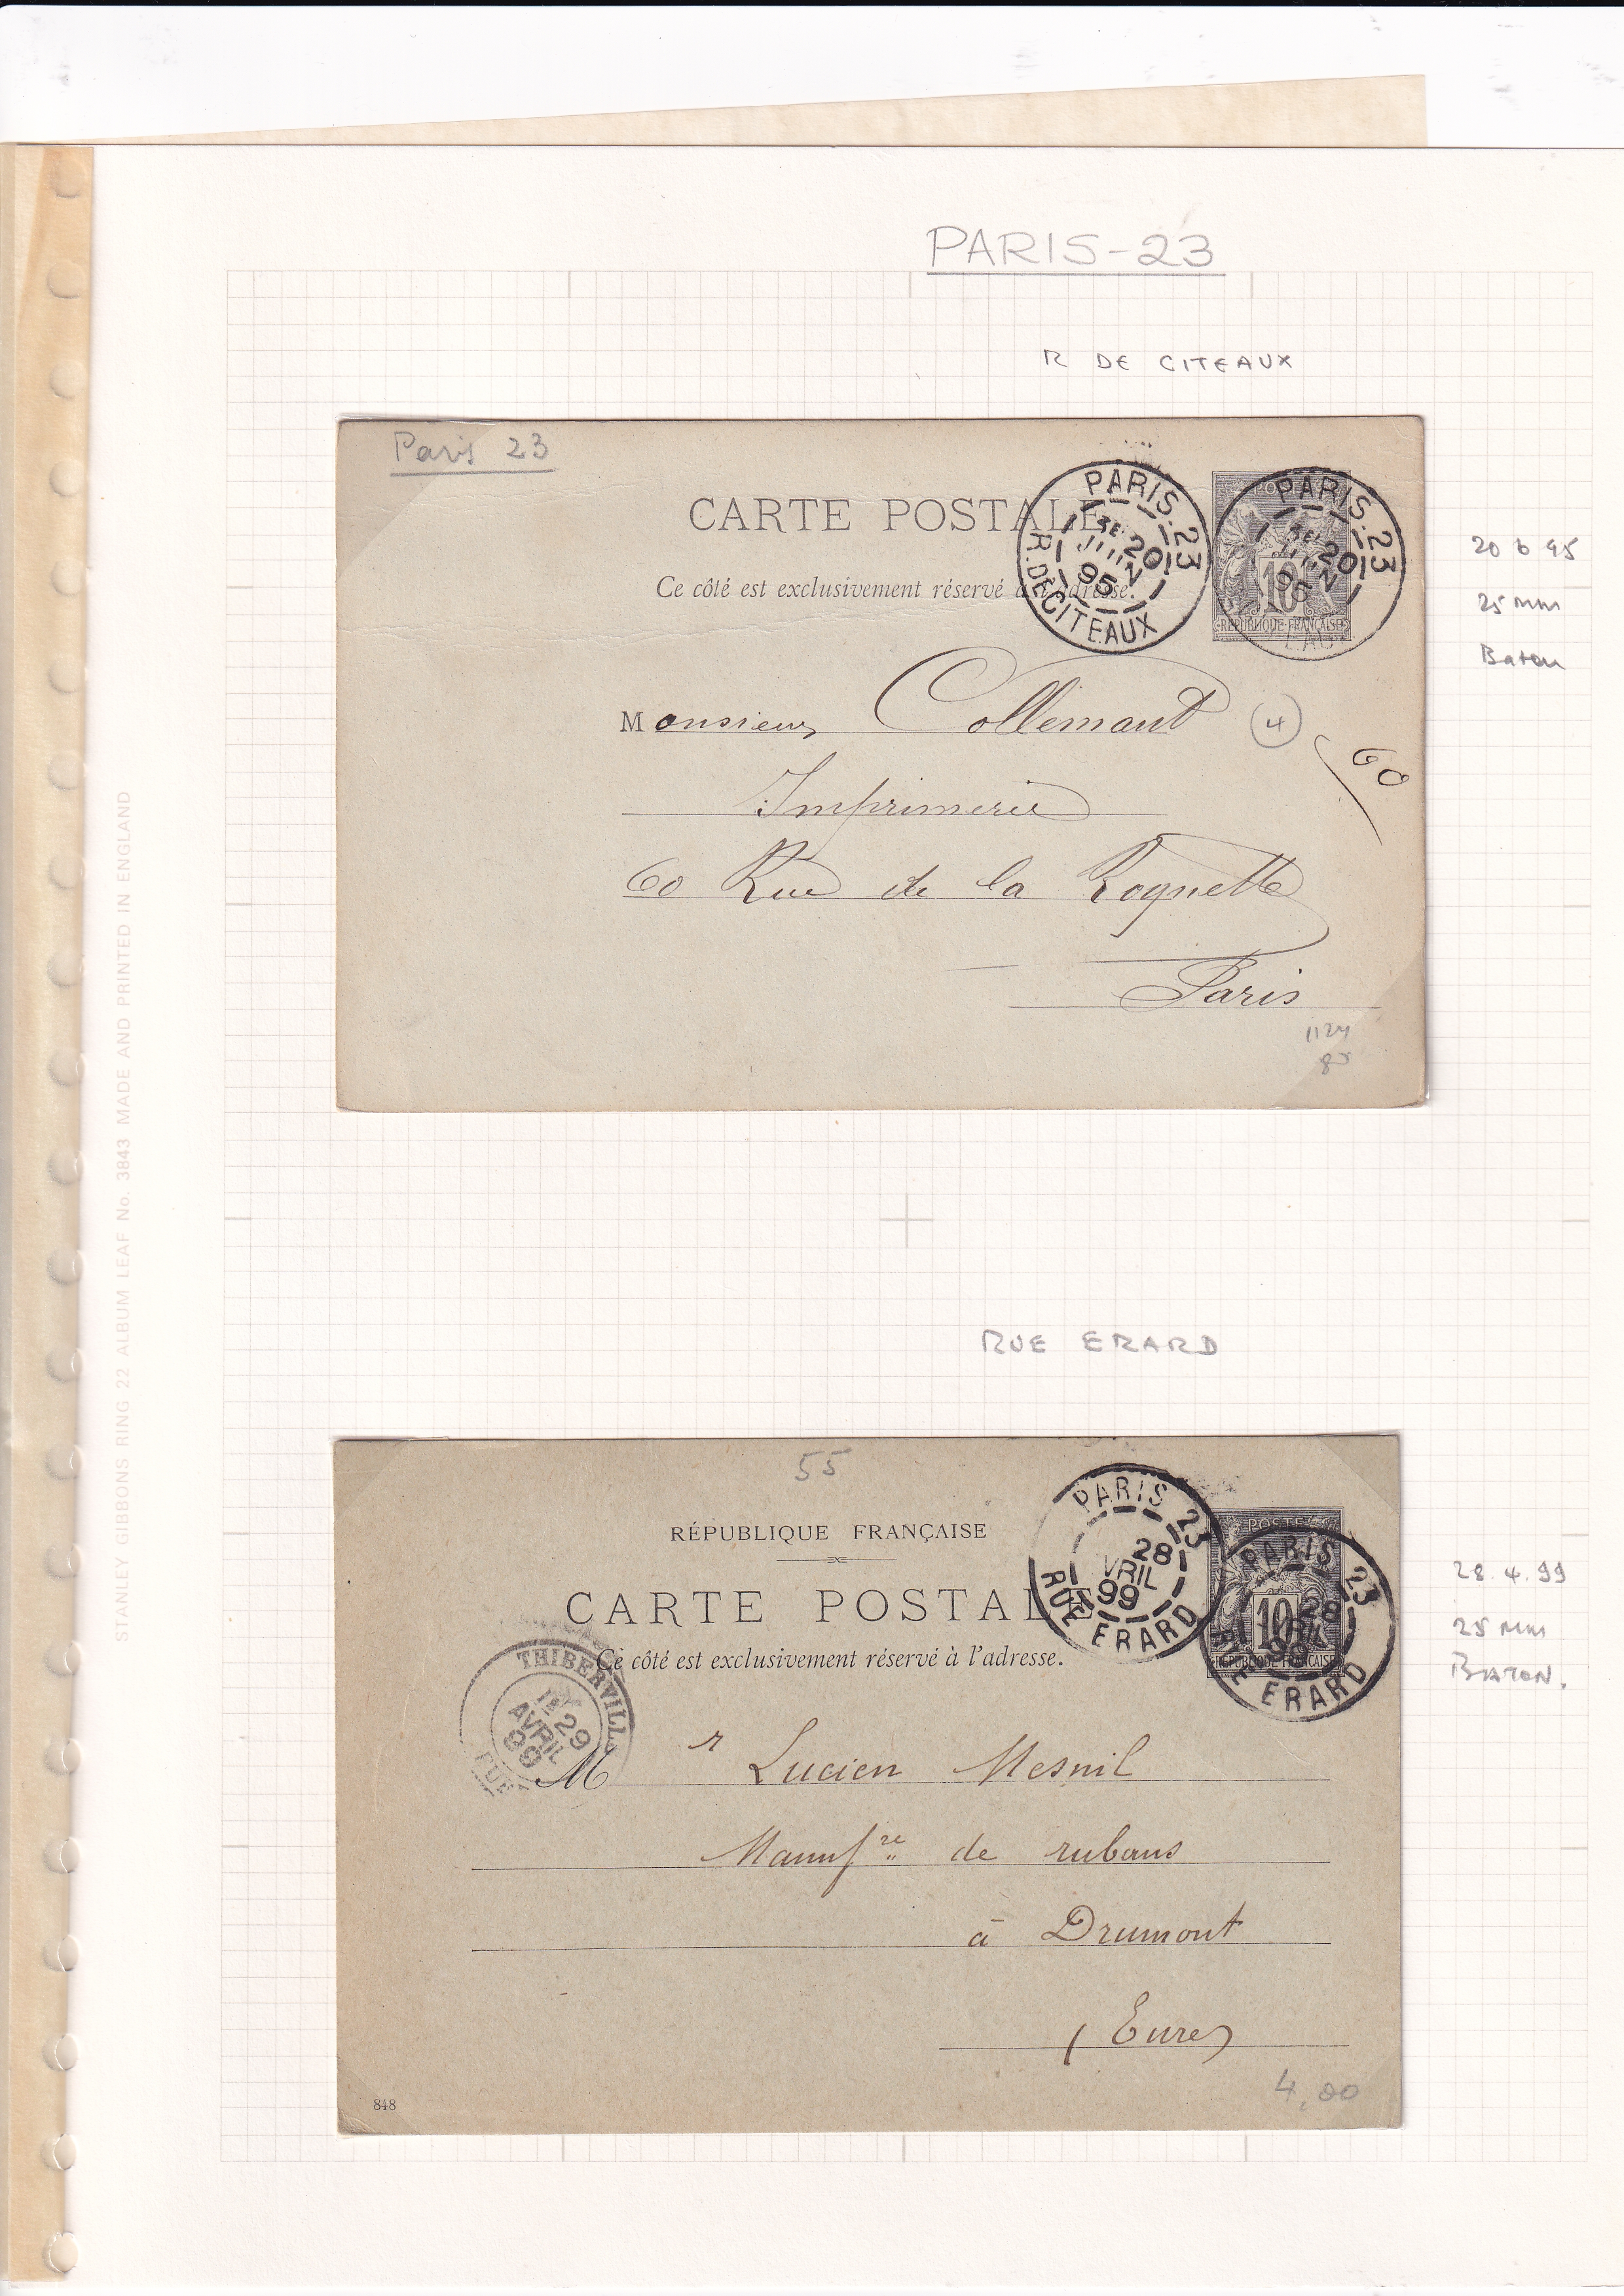 PARIS-23
R DE CITEAUX
Paris 23
CARTE POSTALE
Ce côté est exclusivement réservé à l'adresse.
PARIS. 23
3E 20
JUIN
95
R. DE CITEAUX
POSTES
10
REPUBLIQUE FRANÇAISE
PARIS. 23
3E 20
JUIN
95
20 6 95
25 mm
Baton
Monsieur Collemant
4
60
Imprimerie
60 Rue de la Roquette
Paris
1124
STANLEY GIBBONS RING 22 ALBUM LEAF No. 3843 MADE AND PRINTED IN ENGLAND
RUE ERARD
55
RÉPUBLIQUE FRANÇAISE
CARTE POSTALE
Ce côté est exclusivement réservé à l'adresse.
PARIS 23
28
VRIL
99
RUE ERARD
POSTES
10
REPUBLIQUE FRANÇAISE
PARIS 23
28
99
RUE ERARD
28.4.99
25 mm
BATON.
THIBERVILL
1E 29
AVRIL
99
EURE
Mr Lucien Mesnil
Manufre de rubans
à Drumont
(Eure)
4,00
848